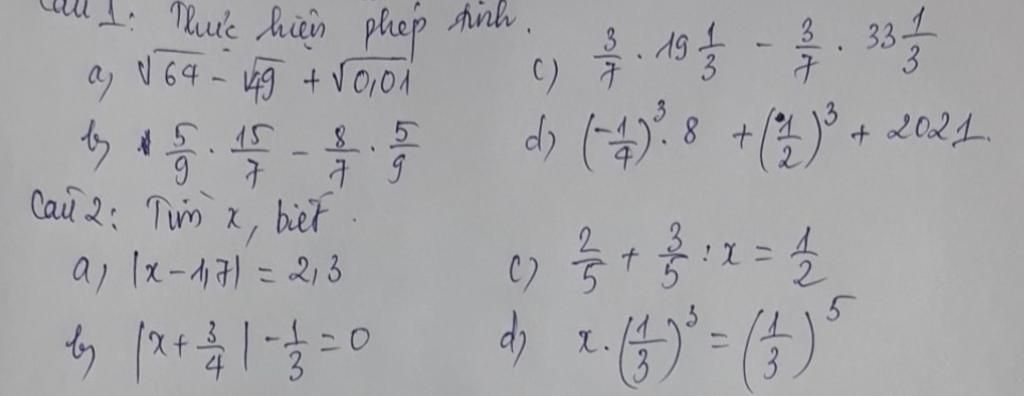 Câu 1: Thực hiện phép tính.
a) √64 - √49 + √0,01
c) 3/7 . 19 1/3 - 3/7 . 33 1/3
b) 5/9 . 15/7 - 8/7 . 5/9
d) (-1/4)³ . 8 + (1/2)³ + 2021.
Câu 2: Tìm x, biết.
a) |x - 1,7| = 2,3
c) 2/5 + 3/5 : x = 1/2
b) |x + 3/4| - 1/3 = 0
d) x . (1/3)³ = (1/3)⁵